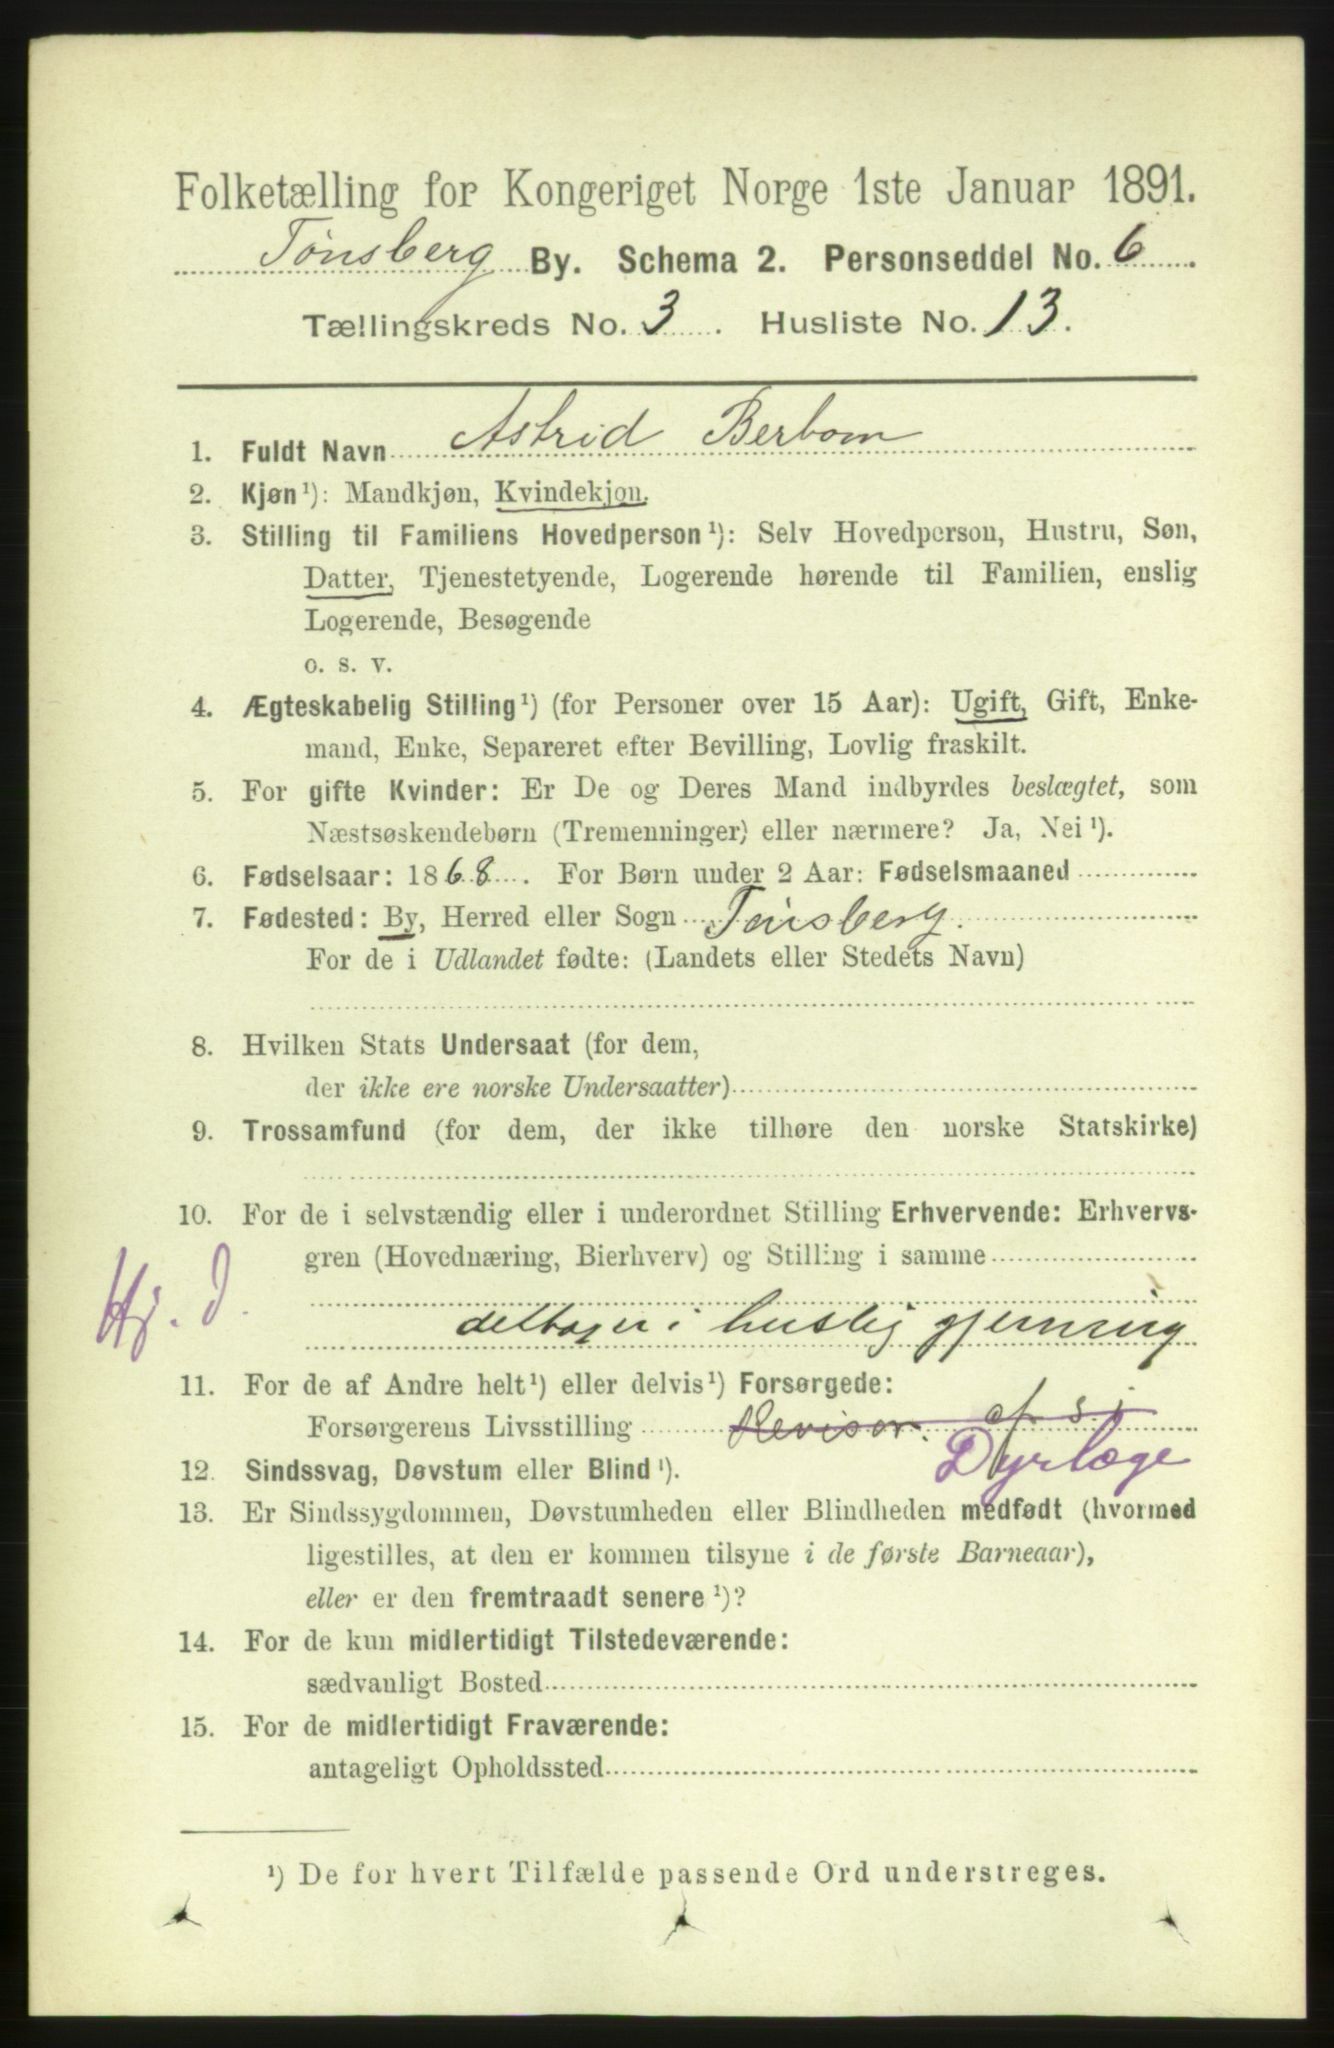 Folketælling for Kongeriget Norge 1ste Januar 1891.
Tønsberg By. Schema 2. Personseddel No. 6.
Tællingskreds No. 3. Husliste No. 13.
1. Fuldt Navn Astrid Berbom
2. Kjøn¹): Mandkjøn, Kvindekjøn.
3. Stilling til Familiens Hovedperson¹): Selv Hovedperson, Hustru, Søn,
Datter, Tjenestetyende, Logerende hørende til Familien, enslig
Logerende, Besøgende
o. s. v.
4. Ægteskabelig Stilling¹) (for Personer over 15 Aar): Ugift, Gift, Enke-
mand, Enke, Separeret efter Bevilling, Lovlig fraskilt.
5. For gifte Kvinder: Er De og Deres Mand indbyrdes beslægtet, som
Næstsøskendebørn (Tremenninger) eller nærmere? Ja, Nei¹).
6. Fødselsaar: 1868. For Børn under 2 Aar: Fødselsmaaned
7. Fødested: By, Herred eller Sogn Tønsberg.
For de i Udlandet fødte: (Landets eller Stedets Navn)
8. Hvilken Stats Undersaat (for dem,
der ikke ere norske Undersaatter)
9. Trossamfund (for dem, der ikke tilhøre den norske Statskirke)
10. For de i selvstændig eller i underordnet Stilling Erhvervende: Erhvervs-
gren (Hovednæring, Bierhverv) og Stilling i samme
Hj. d.
deltager i huslig gjerning
11. For de af Andre helt¹) eller delvis¹) Forsørgede:
Forsørgerens Livsstilling Revisor.
Dyrlæge
12. Sindssvag, Døvstum eller Blind¹).
13. Er Sindssygdommen, Døvstumheden eller Blindheden medfødt (hvormed
ligestilles, at den er kommen tilsyne i de første Barneaar),
eller er den fremtraadt senere¹)?
14. For de kun midlertidigt Tilstedeværende:
sædvanligt Bosted
15. For de midlertidigt Fraværende:
antageligt Opholdssted
¹) De for hvert Tilfælde passende Ord understreges.